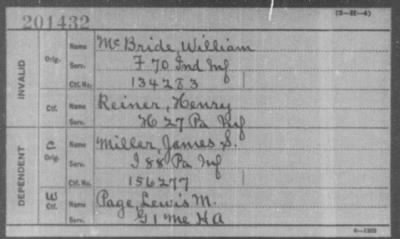 201432
(3-2E-4)
INVALID
Orig.
Name McBride, William
Serv. F 70 Ind Inf
Ctf. No. 134283
Ctf.
Name Reiner, Henry
Serv. H 27 Pa Inf
DEPENDENT
C
Orig.
Name Miller, James S.
Serv. I 88 Pa Inf
Ctf. No. 156277
W
Ctf.
Name Page, Lewis M.
Serv. G 1 Me H A